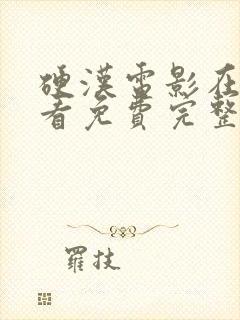 硬漢電影在
看免費完整
羅技